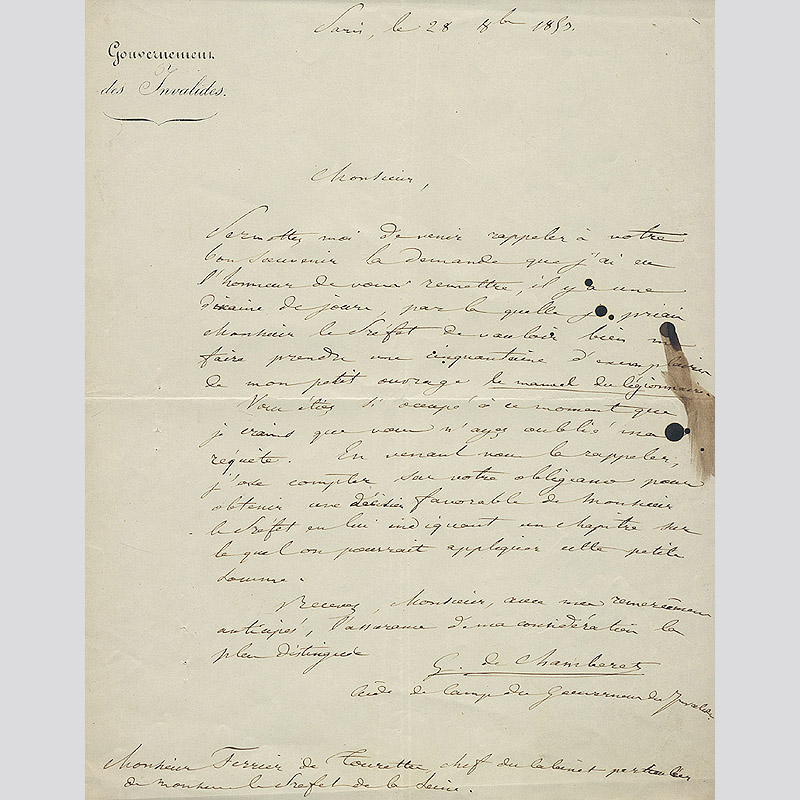 Paris, le 28 8bre 185
Gouvernement
des Invalides.
Monsieur,
Permettez moi de venir rappeler à votre
bon souvenir la demande que j'ai eu
l'honneur de vous remettre, il y a une
dixaine de jours, par la quelle je priais
Monsieur le Préfet de vouloir bien me
faire prendre une cinquantaine d'exemplaires
de mon petit ouvrage le manuel du légionnaire.
Vous étiez si occupé à ce moment que
je crains que vous n'ayez oublié ma
requête. En venant vous la rappeler,
j'ose compter sur votre obligeance pour
obtenir une décision favorable de Monsieur
le Préfet en lui indiquant un chapitre sur
le quel on pourrait appliquer cette petite
somme.
Recevez, Monsieur, avec mes remerciemens
anticipés, l'assurance de ma considération la
plus distinguée
G. de Chamberet
Aide de Camp du Gouverneur des Invalides
Monsieur Ferrier de Tourettes chef du Cabinet particulier
de monsieur le Préfet de la Seine.